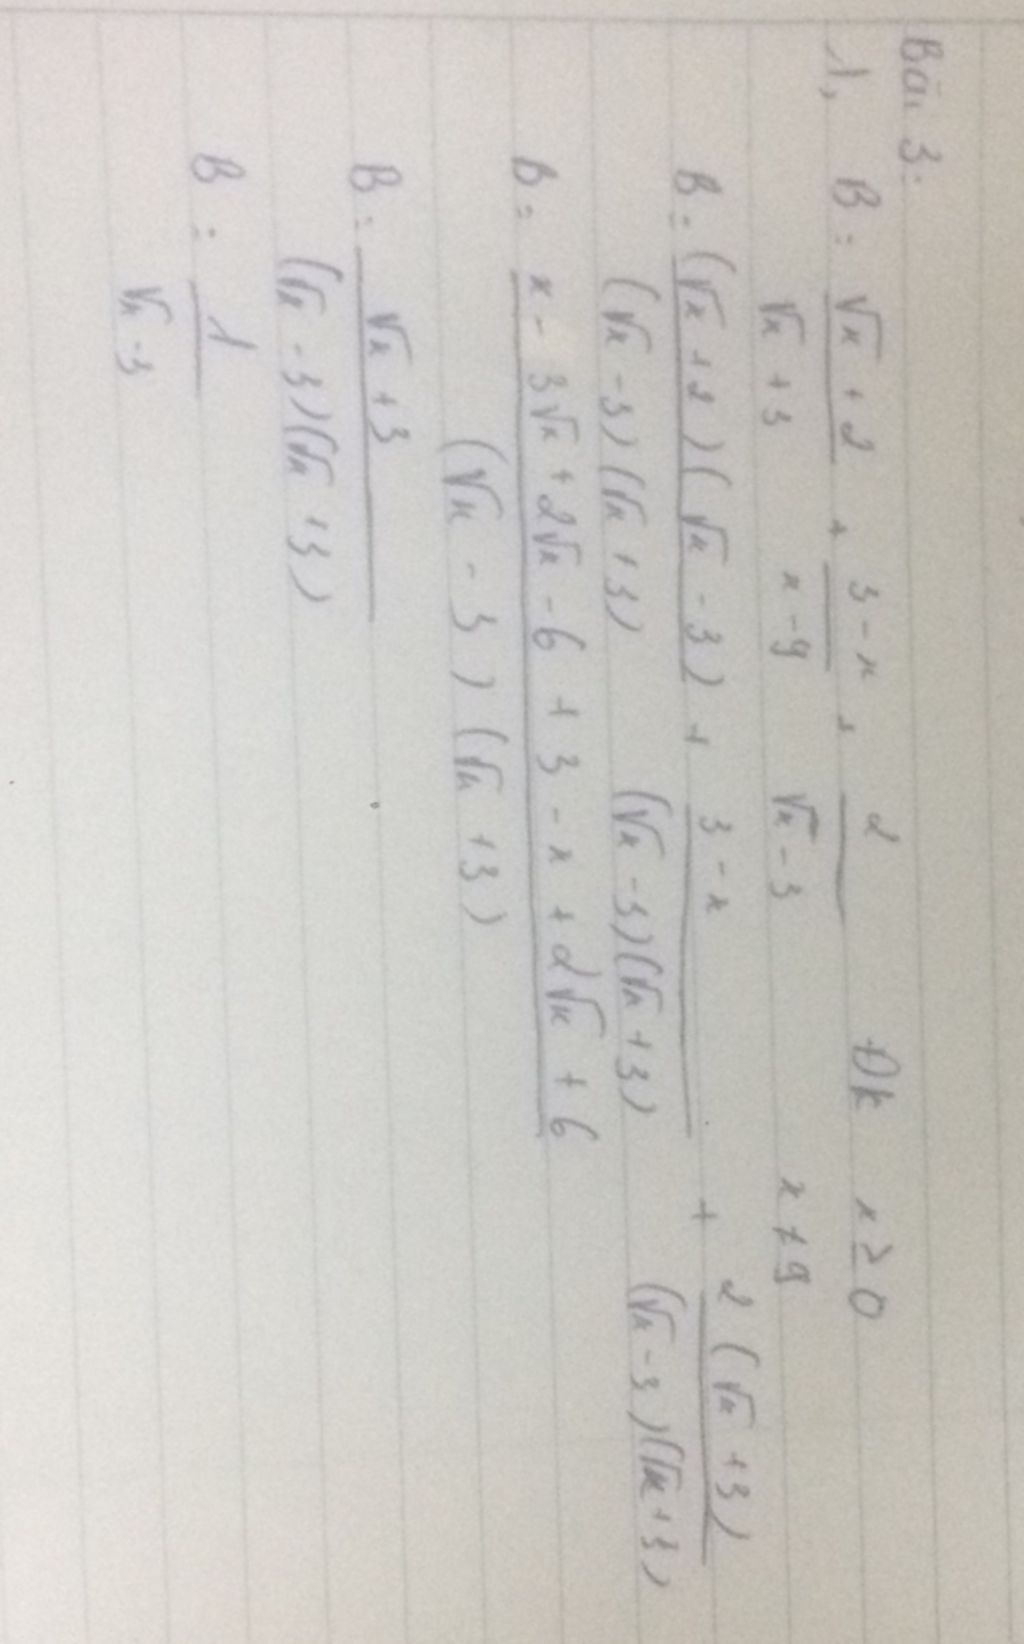 Bài 3:
1, B = (√x + 2)/(√x + 3) + (3 - x)/(x - 9) + 2/(√x - 3) Đk x ≥ 0
x ≠ 9
B = ((√x + 2)(√x - 3))/((√x - 3)(√x + 3)) + (3 - x)/((√x - 3)(√x + 3)) + (2(√x + 3))/((√x - 3)(√x + 3))
B = (x - 3√x + 2√x - 6 + 3 - x + 2√x + 6)/((√x - 3)(√x + 3))
B = (√x + 3)/((√x - 3)(√x + 3))
B = 1/(√x - 3)